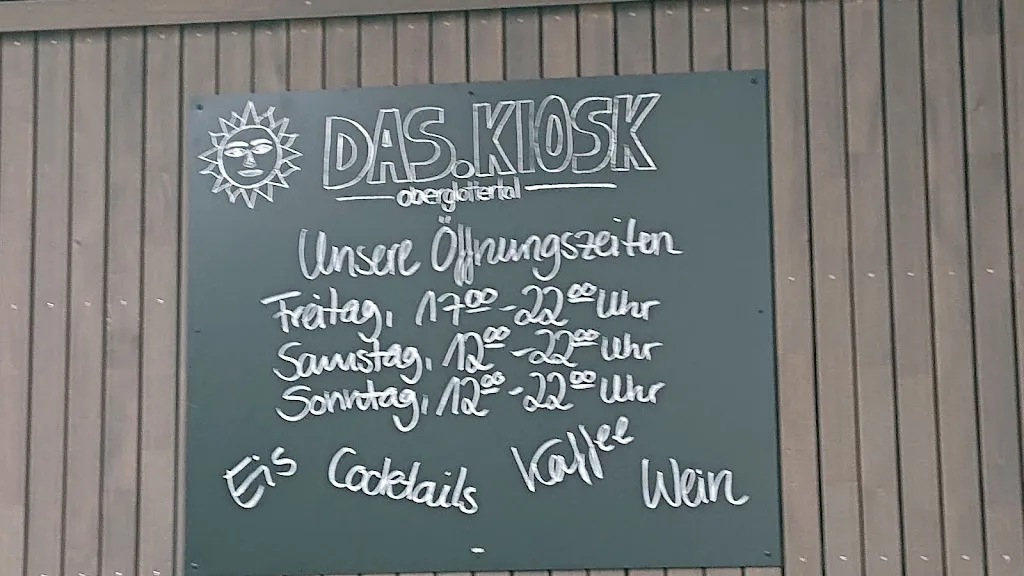 DAS.KIOSK
oberglottertal
Unsere Öffnungszeiten
Freitag, 17⁰⁰-22⁰⁰ Uhr
Samstag, 12⁰⁰-22⁰⁰ Uhr
Sonntag, 12⁰⁰-22⁰⁰ Uhr
Eis Cocktails Kaffee Wein